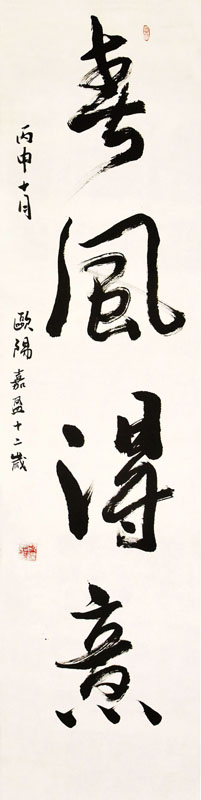 春風得意
丙申十月
歐陽嘉盈十二歲